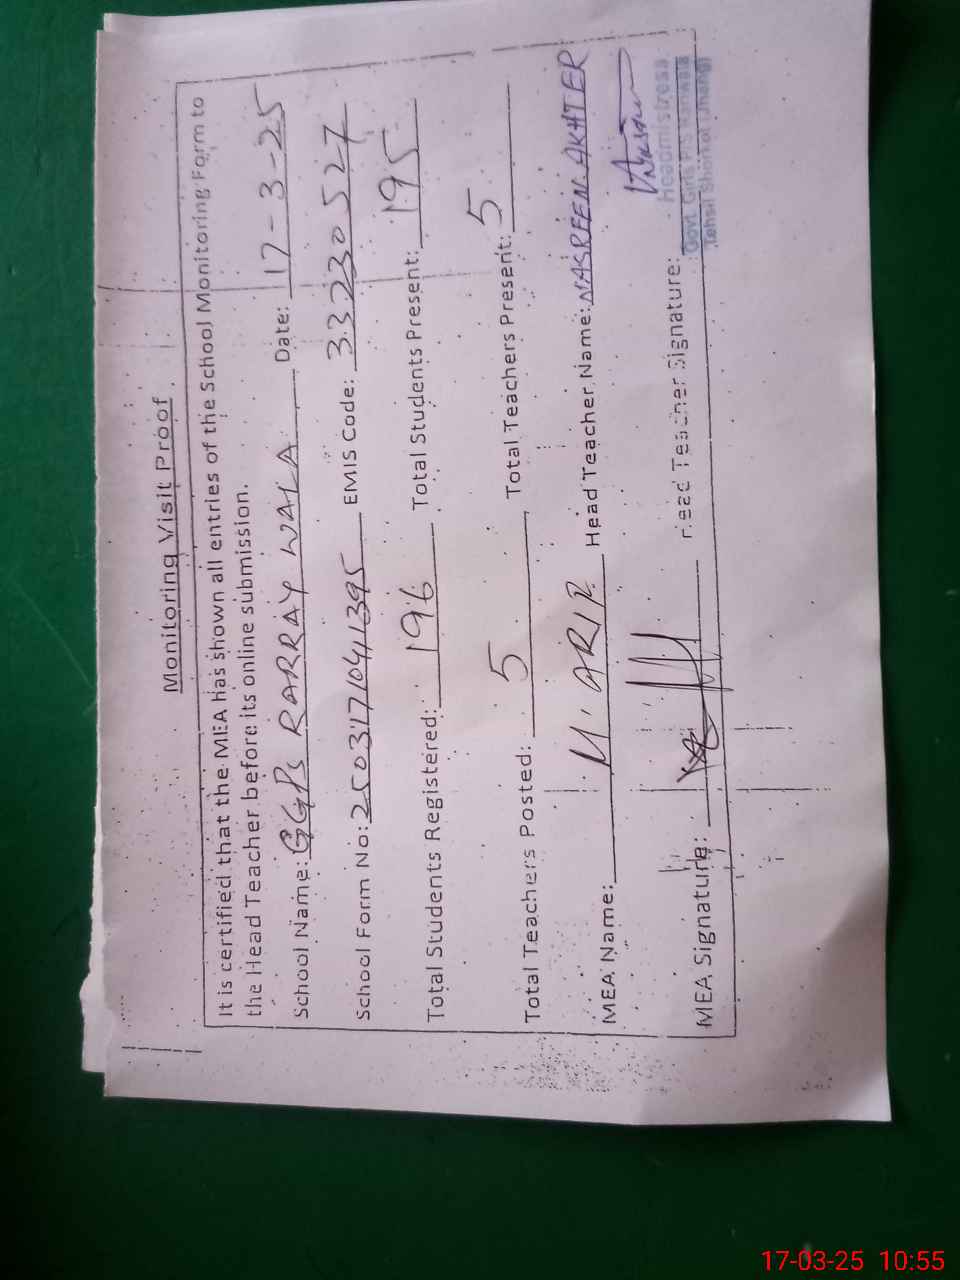 Monitoring Visit Proof
It is certified that the MEA has shown all entries of the School Monitoring Form to
the Head Teacher before its online submission.
School Name: GGPS RARRAY WALA Date: 17-3-25
School Form No: 25031710411395 EMIS Code: 33230527
Total Students Registered: 196 Total Students Present: 195
Total Teachers Posted: 5 Total Teachers Present: 5
MEA Name: M. ARIR Head Teacher Name: NASREEN AKHTER
MEA Signature: Head Teacher Signature:
Headmistress
Govt. Girls P/S
Tehsil Shorkot (Jhang)
17-03-25 10:55